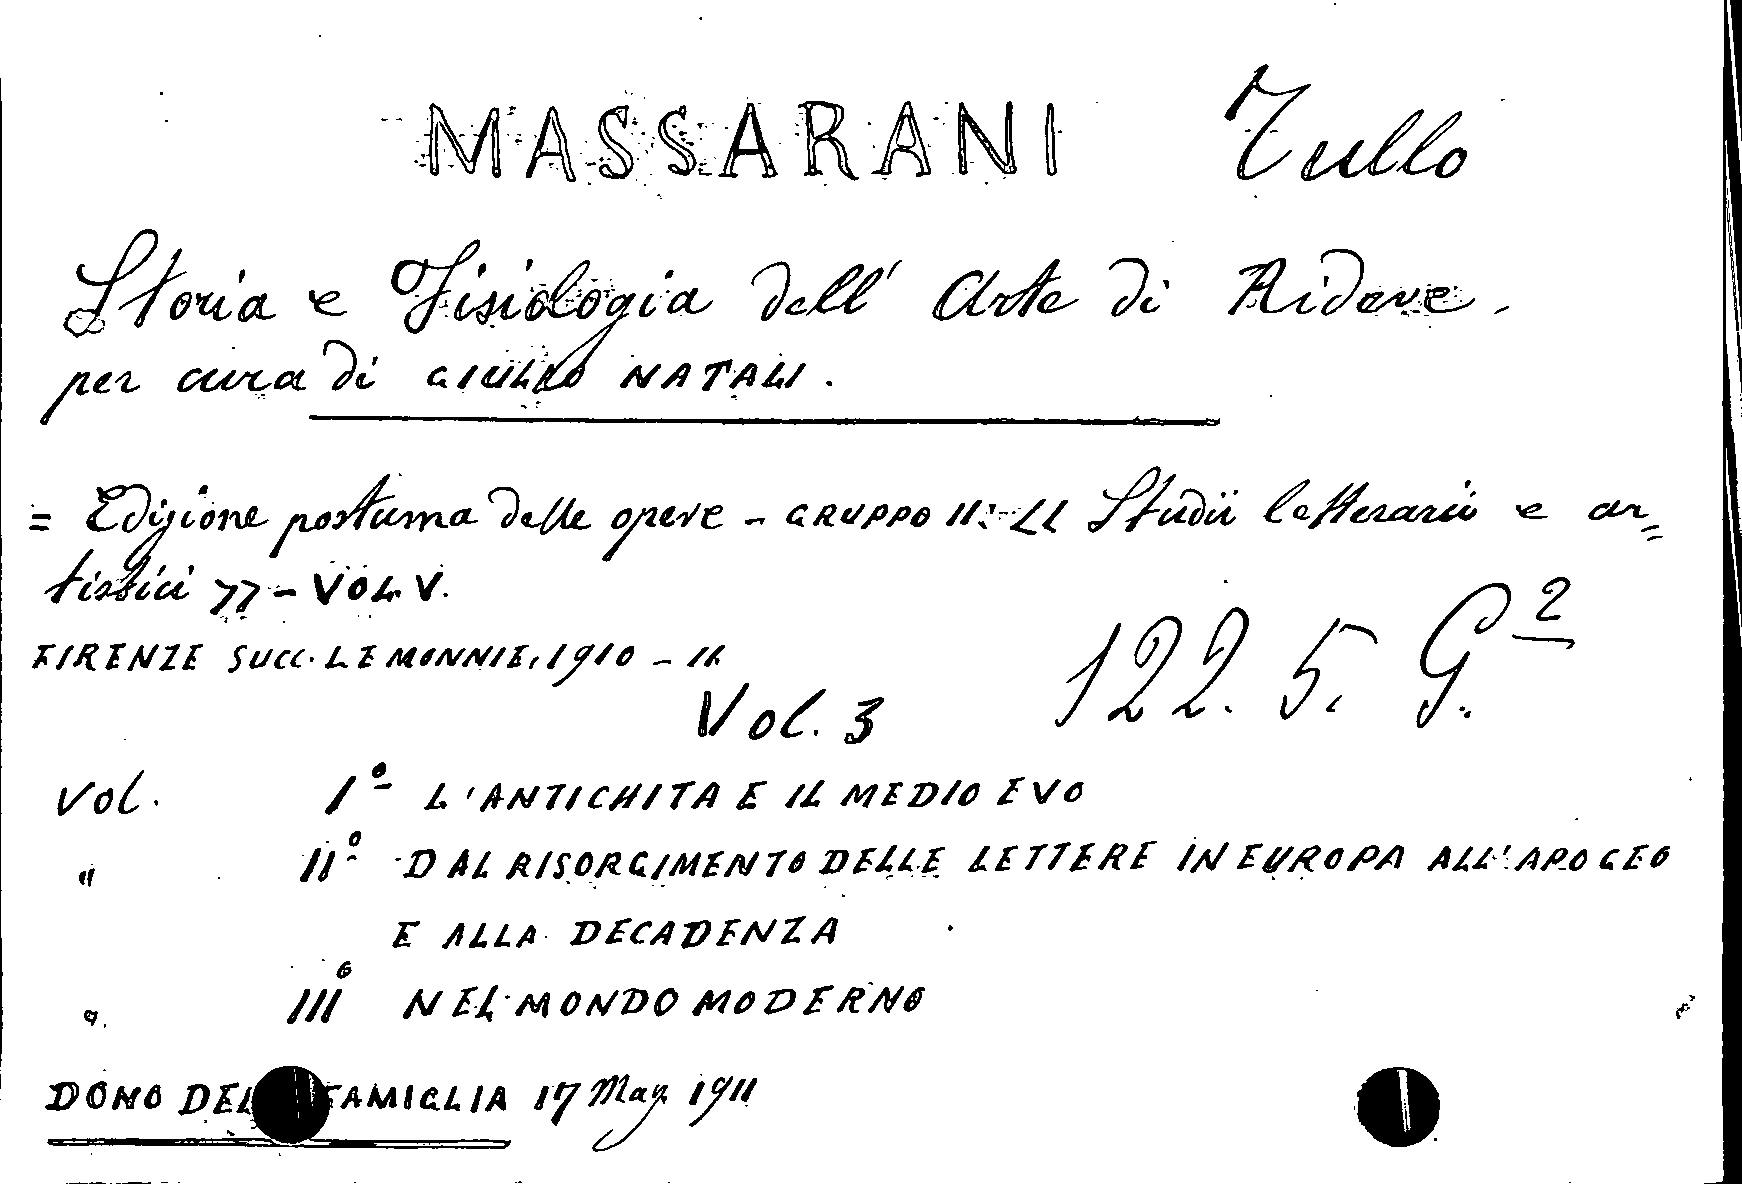 MASSARANI Tullo
Storia e Fisiologia dell' Arte di Ridere.
per cura di GIULIO NATALI.
= Edizione postuma delle opere - GRUPPO II: „ Studii letterarii e ar=
tistici „ - VOL. V.
FIRENZE SUCC. LE MONNIE. 1910 - 11
Vol. 3
122. 5. G.²
Vol. I° L'ANTICHITA E IL MEDIO EVO
" II° DAL RISORGIMENTO DELLE LETTERE IN EUROPA ALL'APOGEO
E ALLA DECADENZA
" III° NEL MONDO MODERNO
DONO DEL FAMIGLIA 17 Mag. 1911